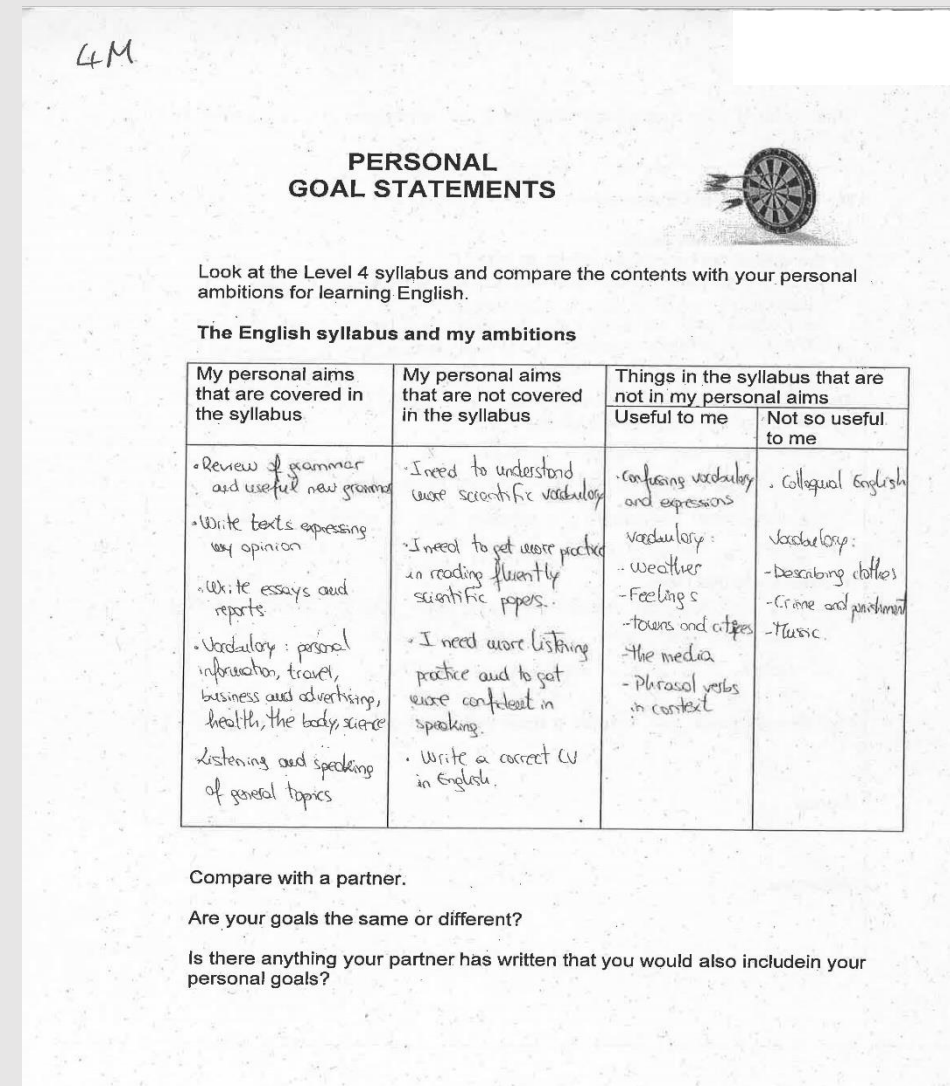 4M
PERSONAL
GOAL STATEMENTS
Look at the Level 4 syllabus and compare the contents with your personal
ambitions for learning English.
The English syllabus and my ambitions
My personal aims
that are covered in
the syllabus
My personal aims
that are not covered
in the syllabus
Things in the syllabus that are
not in my personal aims
Useful to me
Not so useful
to me
• Review of grammar
and useful new grammar
• Write texts expressing
my opinion
• Write essays and
reports
• Vocabulary : personal
information, travel,
business and advertising,
health, the body, science
Listening and speaking
of general topics
• I need to understand
more scientific vocabulary
• I need to get more practice
in reading fluently
scientific papers.
• I need more listening
practice and to get
more confident in
speaking.
• Write a correct CV
in English.
• Confusing vocabulary
and expressions
Vocabulary :
- Weather
- Feelings
- towns and cities
- the media
- Phrasal verbs
in context
• Colloqual English
Vocabulary :
- Describing clothes
- Crime and punishment
- Music
Compare with a partner.
Are your goals the same or different?
Is there anything your partner has written that you would also includein your
personal goals?